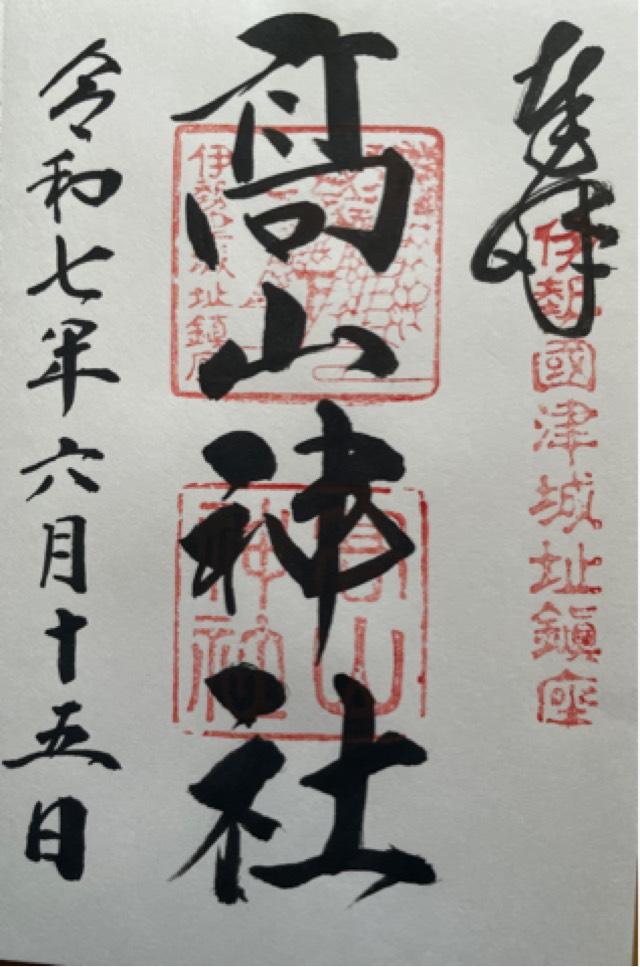 奉拝
伊勢國津城址鎮座
髙山神社
伊勢津城址鎮座
高山
神社
令和七年六月十五日